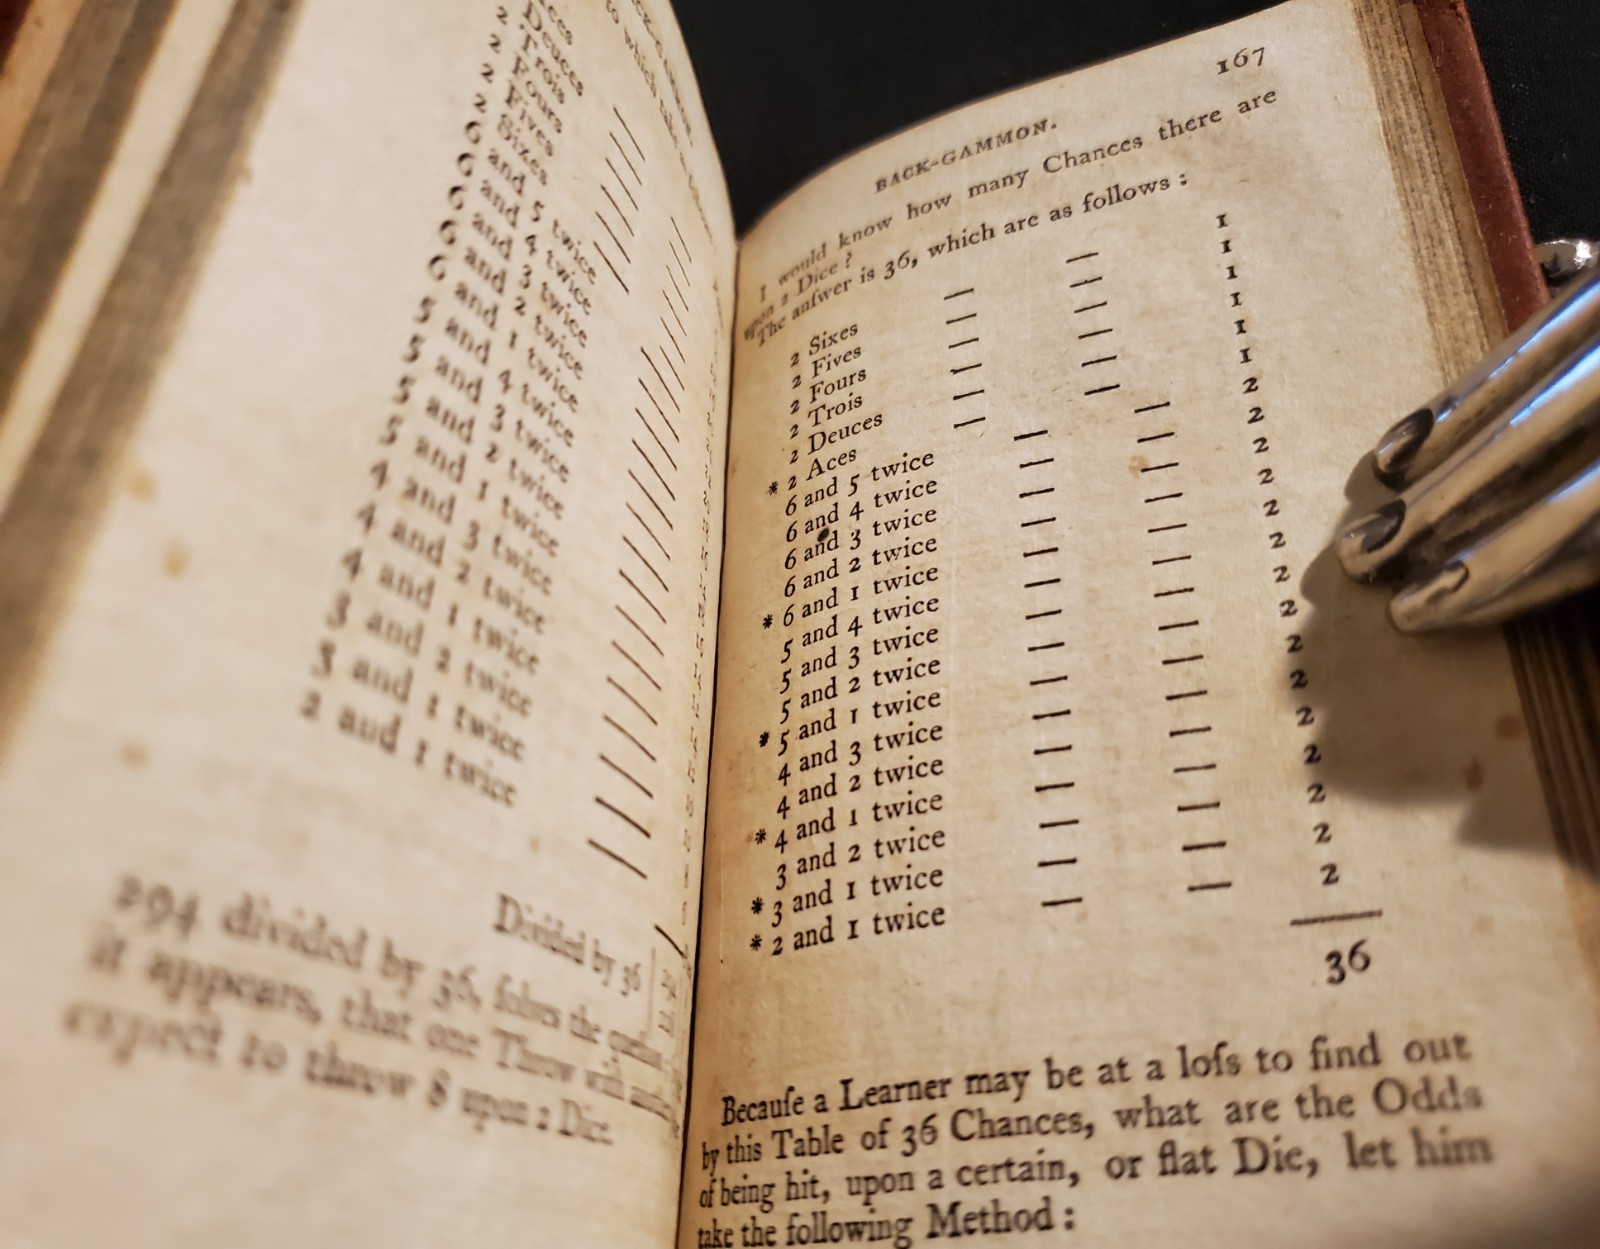 Deuces
2 Trois
2 Fours
2 Fives
2 Sixes
6 and 5 twice
6 and 4 twice
6 and 3 twice
6 and 2 twice
6 and 1 twice
5 and 4 twice
5 and 3 twice
5 and 2 twice
5 and 1 twice
4 and 3 twice
4 and 2 twice
4 and 1 twice
3 and 2 twice
3 and 1 twice
2 and 1 twice
Divided by 36
294 divided by 36, ſolves the
it appears, that one Throw with
expect to throw 8 upon 2 Dice.
167
BACK-GAMMON.
I would know how many Chances there are
upon 2 Dice?
The anſwer is 36, which are as follows:
2 Sixes — — 1
2 Fives — — 1
2 Fours — — 1
2 Trois — — 1
2 Deuces — — 1
* 2 Aces — — 1
6 and 5 twice — — 2
6 and 4 twice — — 2
6 and 3 twice — — 2
6 and 2 twice — — 2
* 6 and 1 twice — — 2
5 and 4 twice — — 2
5 and 3 twice — — 2
5 and 2 twice — — 2
* 5 and 1 twice — — 2
4 and 3 twice — — 2
4 and 2 twice — — 2
* 4 and 1 twice — — 2
3 and 2 twice — — 2
* 3 and 1 twice — — 2
* 2 and 1 twice — — 2
36
Becauſe a Learner may be at a loſs to find out
by this Table of 36 Chances, what are the Odds
of being hit, upon a certain, or flat Die, let him
take the following Method: